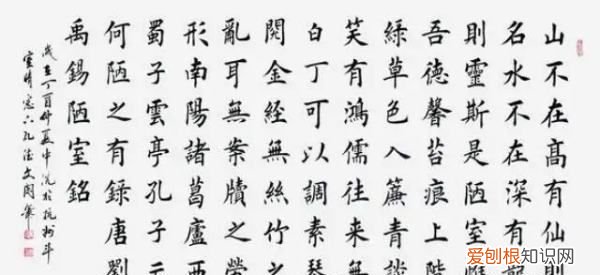 山不在高有仙則
名水不在深有
則靈斯是陋室
吾德馨苔痕上階
綠草色入簾青談
笑有鴻儒往來無
白丁可以調素琴
閱金經無絲竹之
亂耳無案牘之勞
形南陽諸葛廬西
蜀子雲亭孔子云
何陋之有錄唐劉
禹錫陋室銘
歲在丁酉仲夏中浣於杭州斗
室晴窗
爱刨根知识网